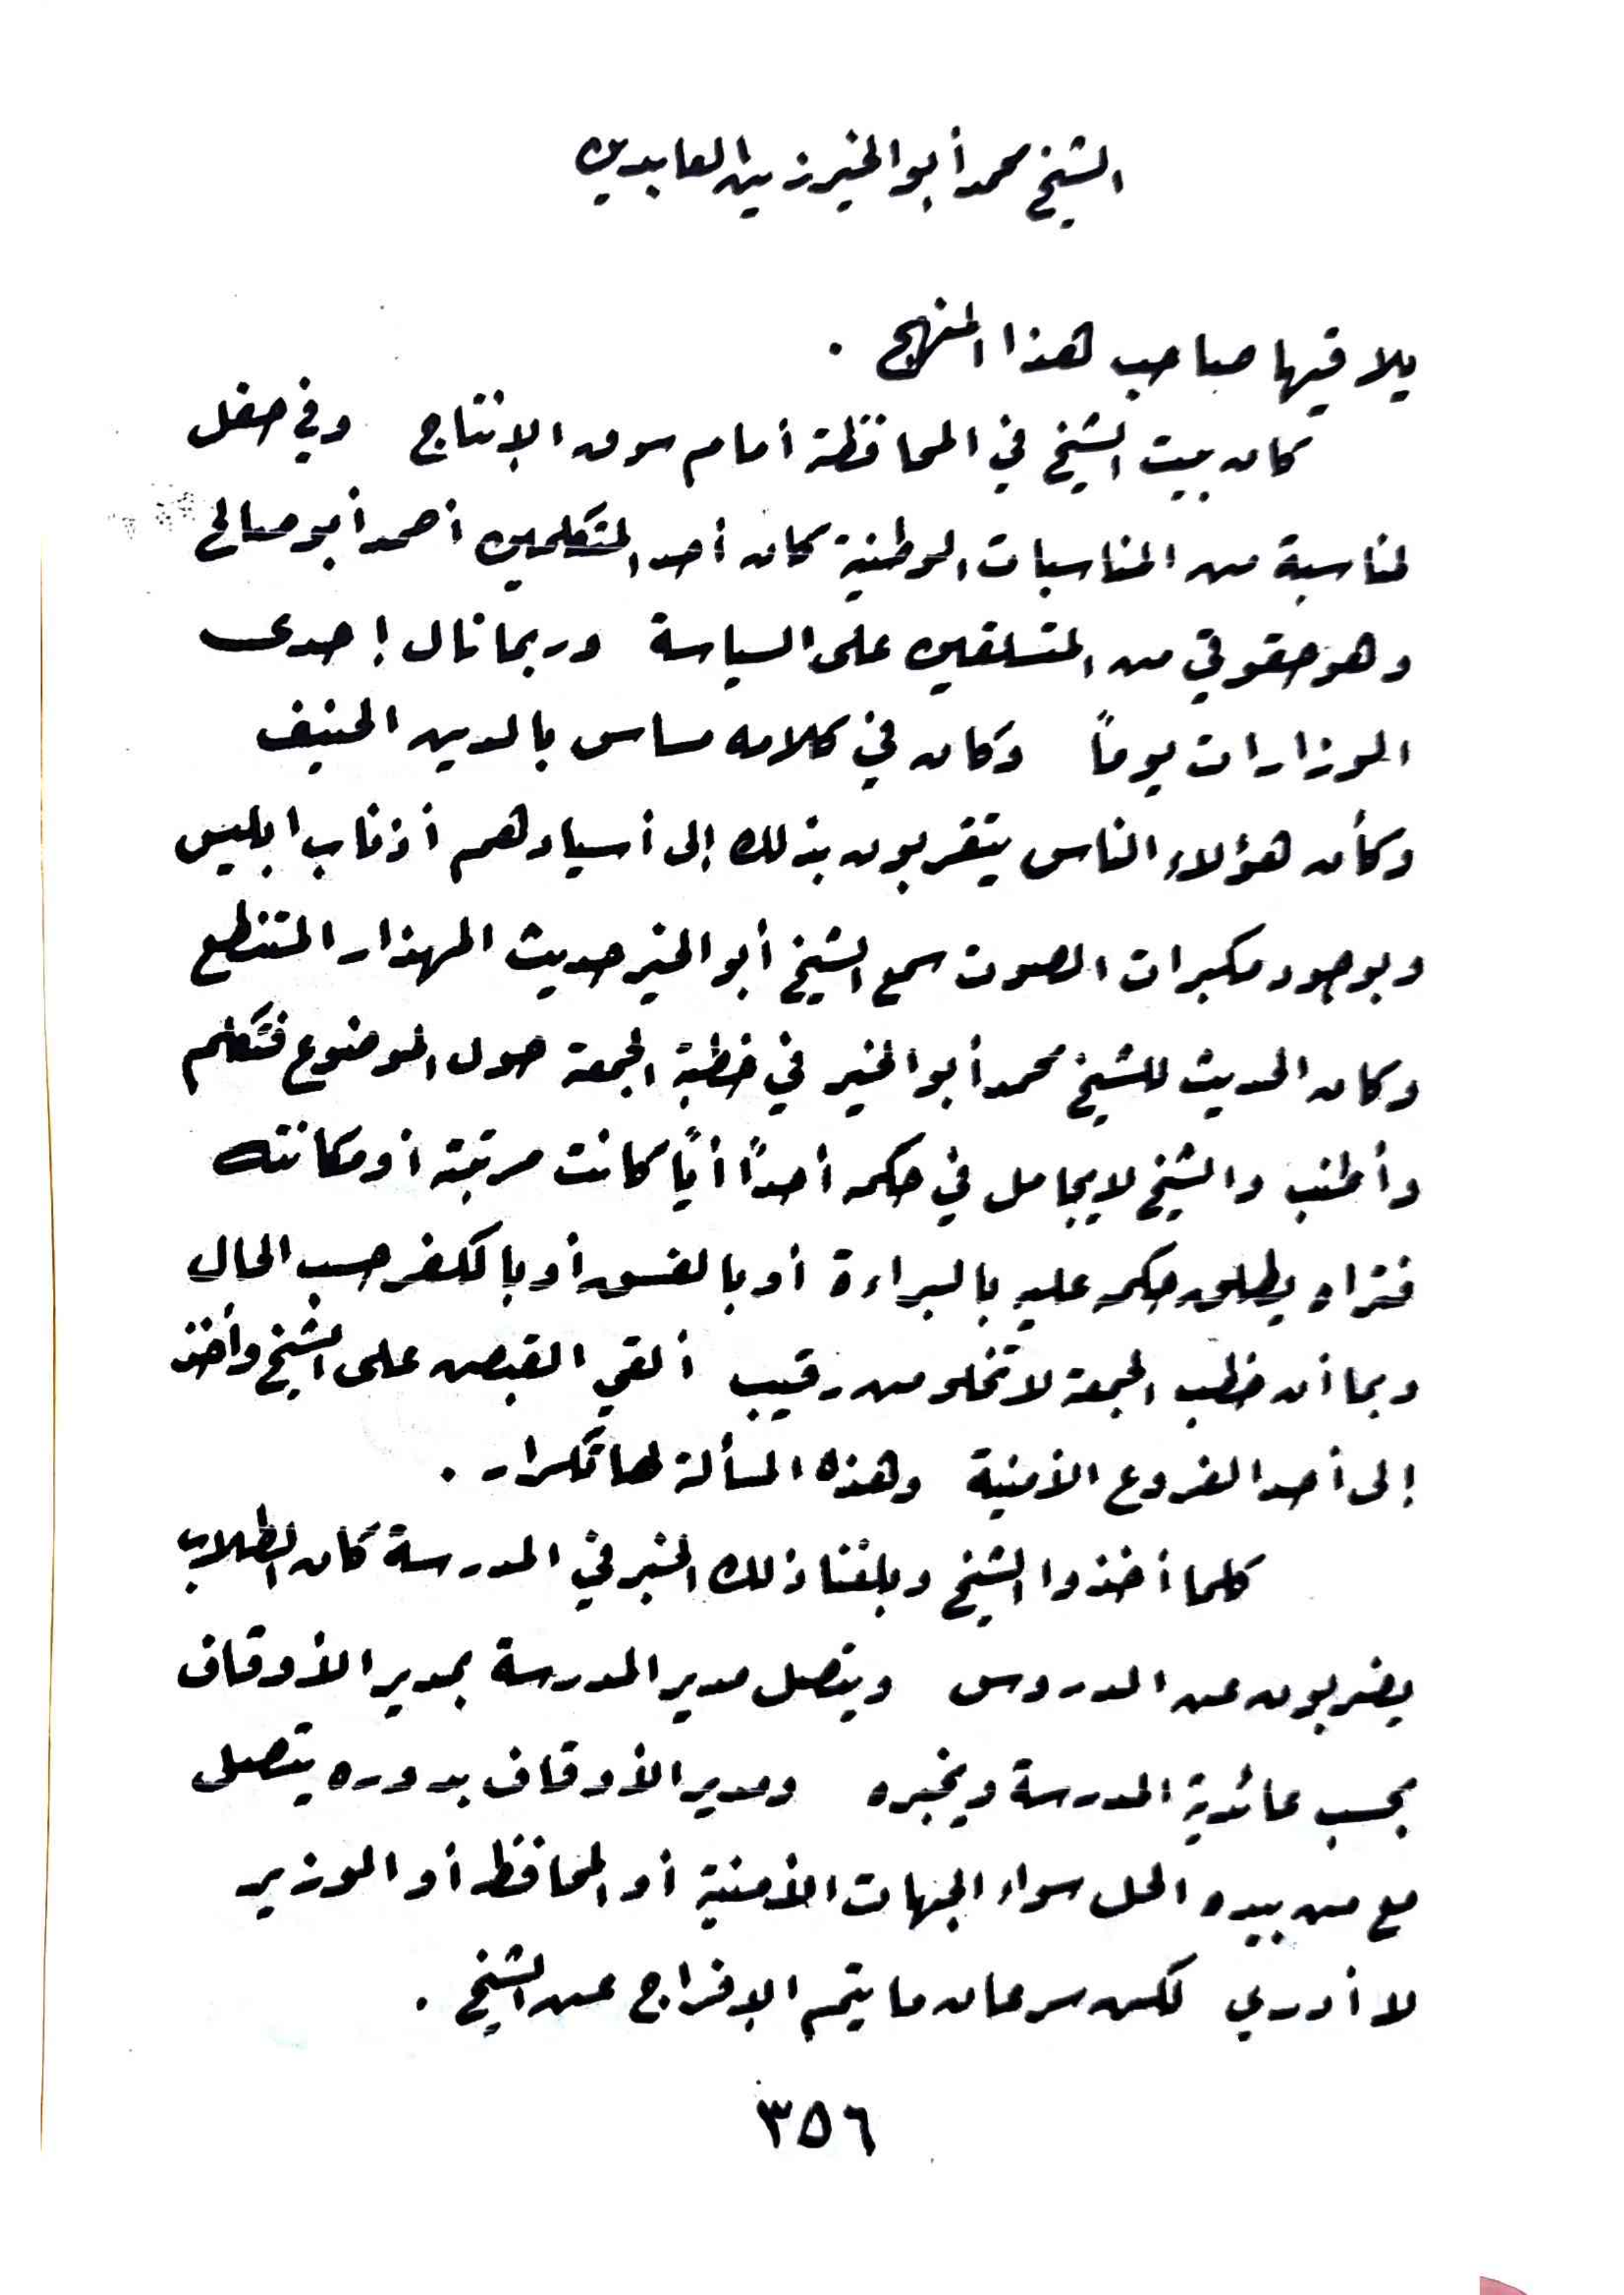 الشيخ محمد أبو الخير زين العابدين
يلاقيها صاحب هذا المنهج .
كان بيت الشيخ في المحافظة أمام سوق الإنتاج وفي حفل
لمناسبة من المناسبات الوطنية كان أحد المتكلمين أحمد أبو صالح
وهو حقوقي من المتسلقين على السياسة وربما نال إحدى
الوزارات يوماً وكان في كلامه مساس بالدين الحنيف
وكأن هؤلاء الناس يتقربون بذلك إلى أسيادهم أذناب ابليس
وبوجود مكبرات الصوت سمع الشيخ أبو الخير حديث المهذار المتنطع
وكان الحديث للشيخ محمد أبو الخير في خطبة الجمعة حول الموضوع فتكلم
وأطنب والشيخ لا يجامل في حكمه أحداً أياً كانت مرتبته أو مكانته
فتراه يطلق حكمه عليه بالبراءة أو بالفسق أو بالكفر حسب الحال
وبما أن خطب الجمعة لا تخلو من رقيب ألقي القبض على الشيخ وأخذ
إلى أحد الفروع الأمنية وهذه المسألة لها تكرار .
كلما أخذوا الشيخ وبلغنا ذلك الخبر في المدرسة كان الطلاب
يضربون عن الدروس ويتصل مدير المدرسة بمدير الأوقاف
بحسب عائدية المدرسة ويخبره ومدير الأوقاف بدوره يتصل
مع من بيده الحل سواء الجهات الأمنية أو المحافظ أو الوزير
لا أدري لكن سرعان ما يتم الإفراج عن الشيخ .
٣٥٦